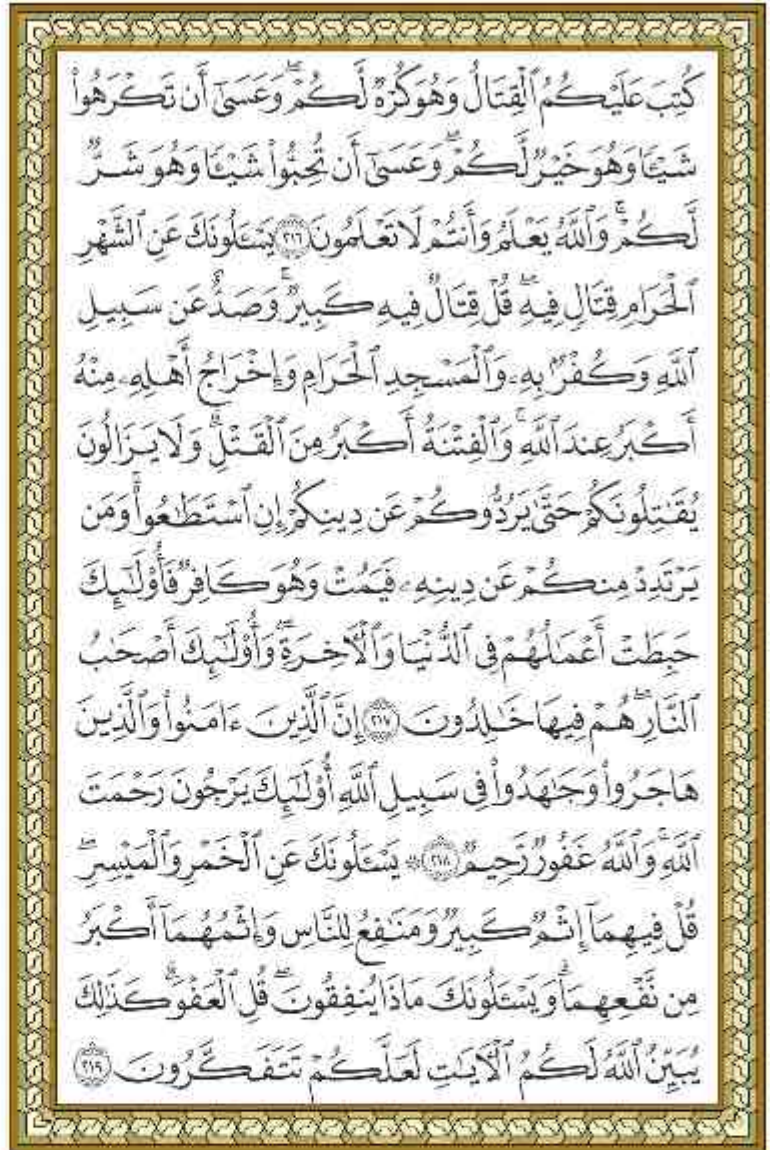 كُتِبَ عَلَيْكُمُ ٱلْقِتَالُ وَهُوَ كُرْهٌ لَّكُمْ ۖ وَعَسَىٰٓ أَن تَكْرَهُوا۟
شَيْـًٔا وَهُوَ خَيْرٌ لَّكُمْ ۖ وَعَسَىٰٓ أَن تُحِبُّوا۟ شَيْـًٔا وَهُوَ شَرٌّ
لَّكُمْ ۗ وَٱللَّهُ يَعْلَمُ وَأَنتُمْ لَا تَعْلَمُونَ ٢١٦ يَسْـَٔلُونَكَ عَنِ ٱلشَّهْرِ
ٱلْحَرَامِ قِتَالٍ فِيهِ ۖ قُلْ قِتَالٌ فِيهِ كَبِيرٌ ۖ وَصَدٌّ عَن سَبِيلِ
ٱللَّهِ وَكُفْرٌۢ بِهِۦ وَٱلْمَسْجِدِ ٱلْحَرَامِ وَإِخْرَاجُ أَهْلِهِۦ مِنْهُ
أَكْبَرُ عِندَ ٱللَّهِ ۚ وَٱلْفِتْنَةُ أَكْبَرُ مِنَ ٱلْقَتْلِ ۗ وَلَا يَزَالُونَ
يُقَـٰتِلُونَكُمْ حَتَّىٰ يَرُدُّوكُمْ عَن دِينِكُمْ إِنِ ٱسْتَطَـٰعُوا۟ ۚ وَمَن
يَرْتَدِدْ مِنكُمْ عَن دِينِهِۦ فَيَمُتْ وَهُوَ كَافِرٌ فَأُو۟لَـٰٓئِكَ
حَبِطَتْ أَعْمَـٰلُهُمْ فِى ٱلدُّنْيَا وَٱلْـَٔاخِرَةِ ۖ وَأُو۟لَـٰٓئِكَ أَصْحَـٰبُ
ٱلنَّارِ ۖ هُمْ فِيهَا خَـٰلِدُونَ ٢١٧ إِنَّ ٱلَّذِينَ ءَامَنُوا۟ وَٱلَّذِينَ
هَاجَرُوا۟ وَجَـٰهَدُوا۟ فِى سَبِيلِ ٱللَّهِ أُو۟لَـٰٓئِكَ يَرْجُونَ رَحْمَتَ
ٱللَّهِ ۚ وَٱللَّهُ غَفُورٌ رَّحِيمٌ ٢١٨ ۞ يَسْـَٔلُونَكَ عَنِ ٱلْخَمْرِ وَٱلْمَيْسِرِ ۖ
قُلْ فِيهِمَآ إِثْمٌ كَبِيرٌ وَمَنَـٰفِعُ لِلنَّاسِ وَإِثْمُهُمَآ أَكْبَرُ
مِن نَّفْعِهِمَا ۗ وَيَسْـَٔلُونَكَ مَاذَا يُنفِقُونَ ۖ قُلِ ٱلْعَفْوَ ۗ كَذَٰلِكَ
يُبَيِّنُ ٱللَّهُ لَكُمُ ٱلْـَٔايَـٰتِ لَعَلَّكُمْ تَتَفَكَّرُونَ ٢١٩